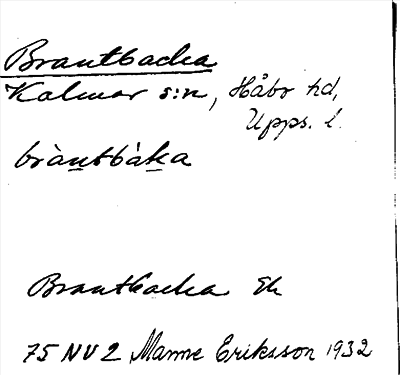 Brantbacka
Kalmar s:n, Håbo hd,
Upps. l.
bràntbàka
Brantbacka Ek
75 NV 2 Manne Eriksson 1932